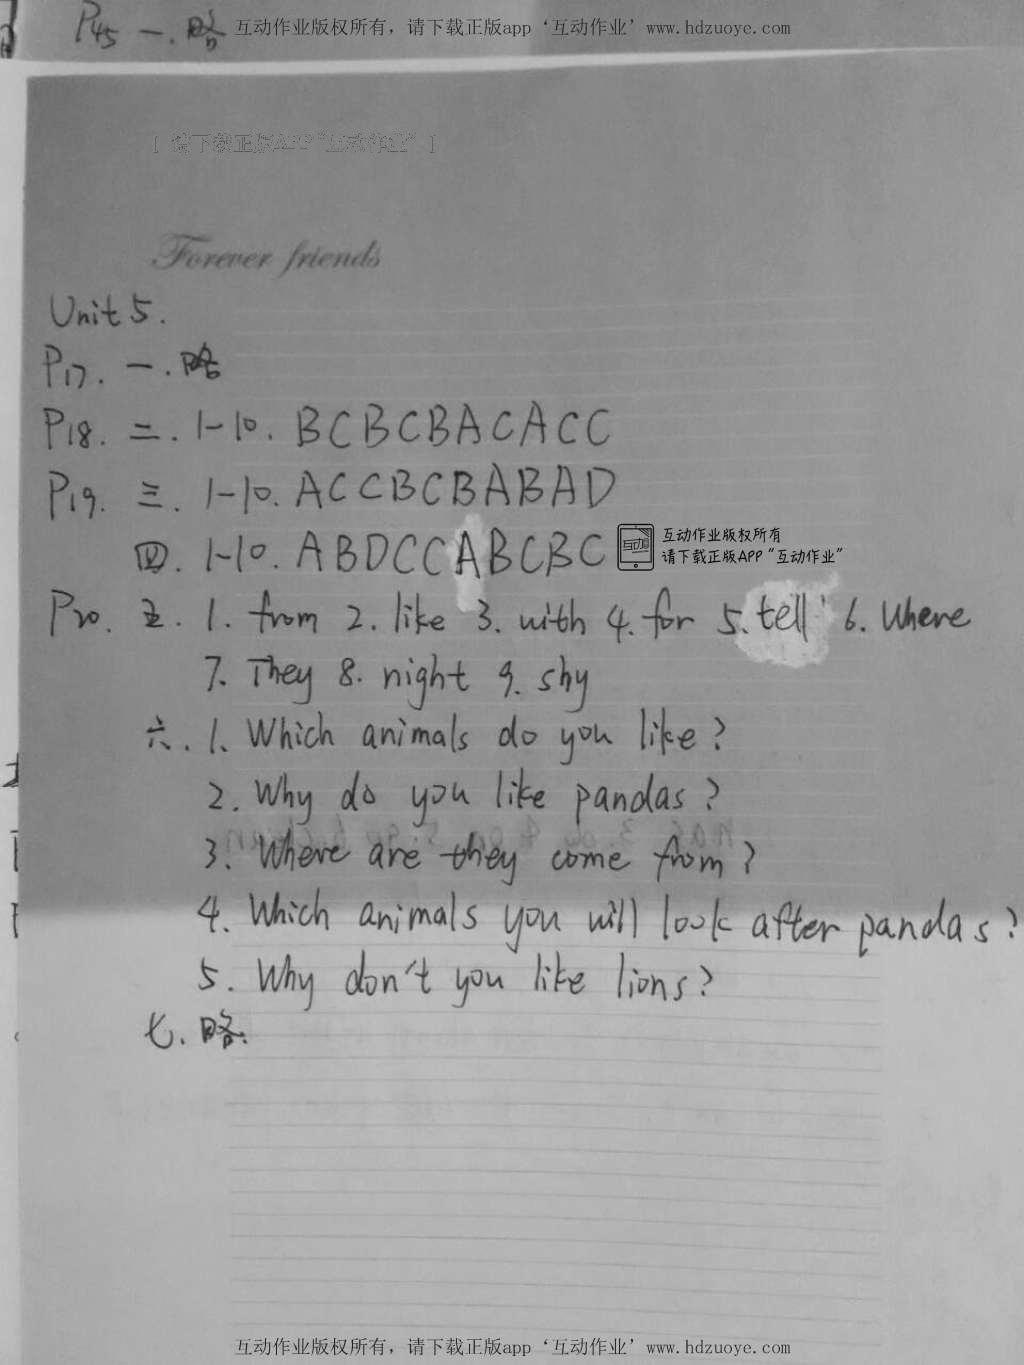 P45 一. 略
互动作业版权所有，请下载正版app‘互动作业’ www.hdzuoye.com
[ 请下载正版APP“互动作业” ]
Forever friends
Unit 5.
P17. 一. 略
P18. 二. 1-10. BCBCBACACC
P19. 三. 1-10. ACCBCBABAD
四. 1-10. ABDCCABCBC
互动作业版权所有
请下载正版APP“互动作业”
P20. 五. 1. from 2. like 3. with 4. for 5. tell 6. Where
7. They 8. night 9. shy
六. 1. Which animals do you like?
2. Why do you like pandas?
3. Where are they come from?
4. Which animals you will look after pandas?
5. Why don't you like lions?
七. 略.
互动作业版权所有，请下载正版app‘互动作业’ www.hdzuoye.com